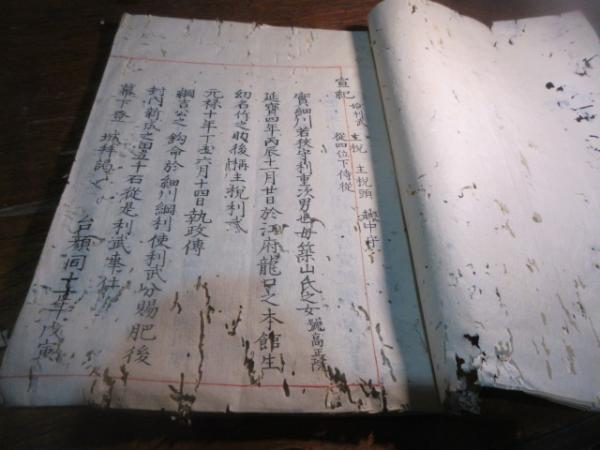 宣紀 始利武 主税 主税頭 越中守
從四位下侍從
實細川若狹守利重次男也母築山氏之女號高正院
延寶四年丙辰十一月廿日於江府龍口之本館生
幼名竹之助後稱主税利武
元祿十年丁丑六月十四日執政傳
綱吉公之鈞命於細川綱利使利武分賜肥後
封內新成三田五千石從是利武奉仕
幕下登 城拜謁 台顏同十一年戊寅